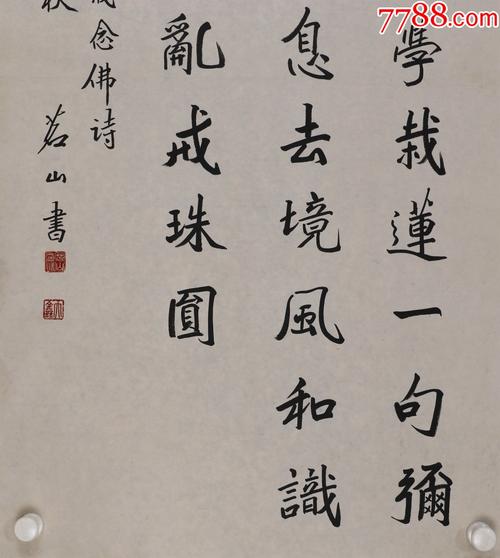 7788.com
學栽蓮一句彌
息去境風和識
亂戒珠圓
念佛詩
茗山書